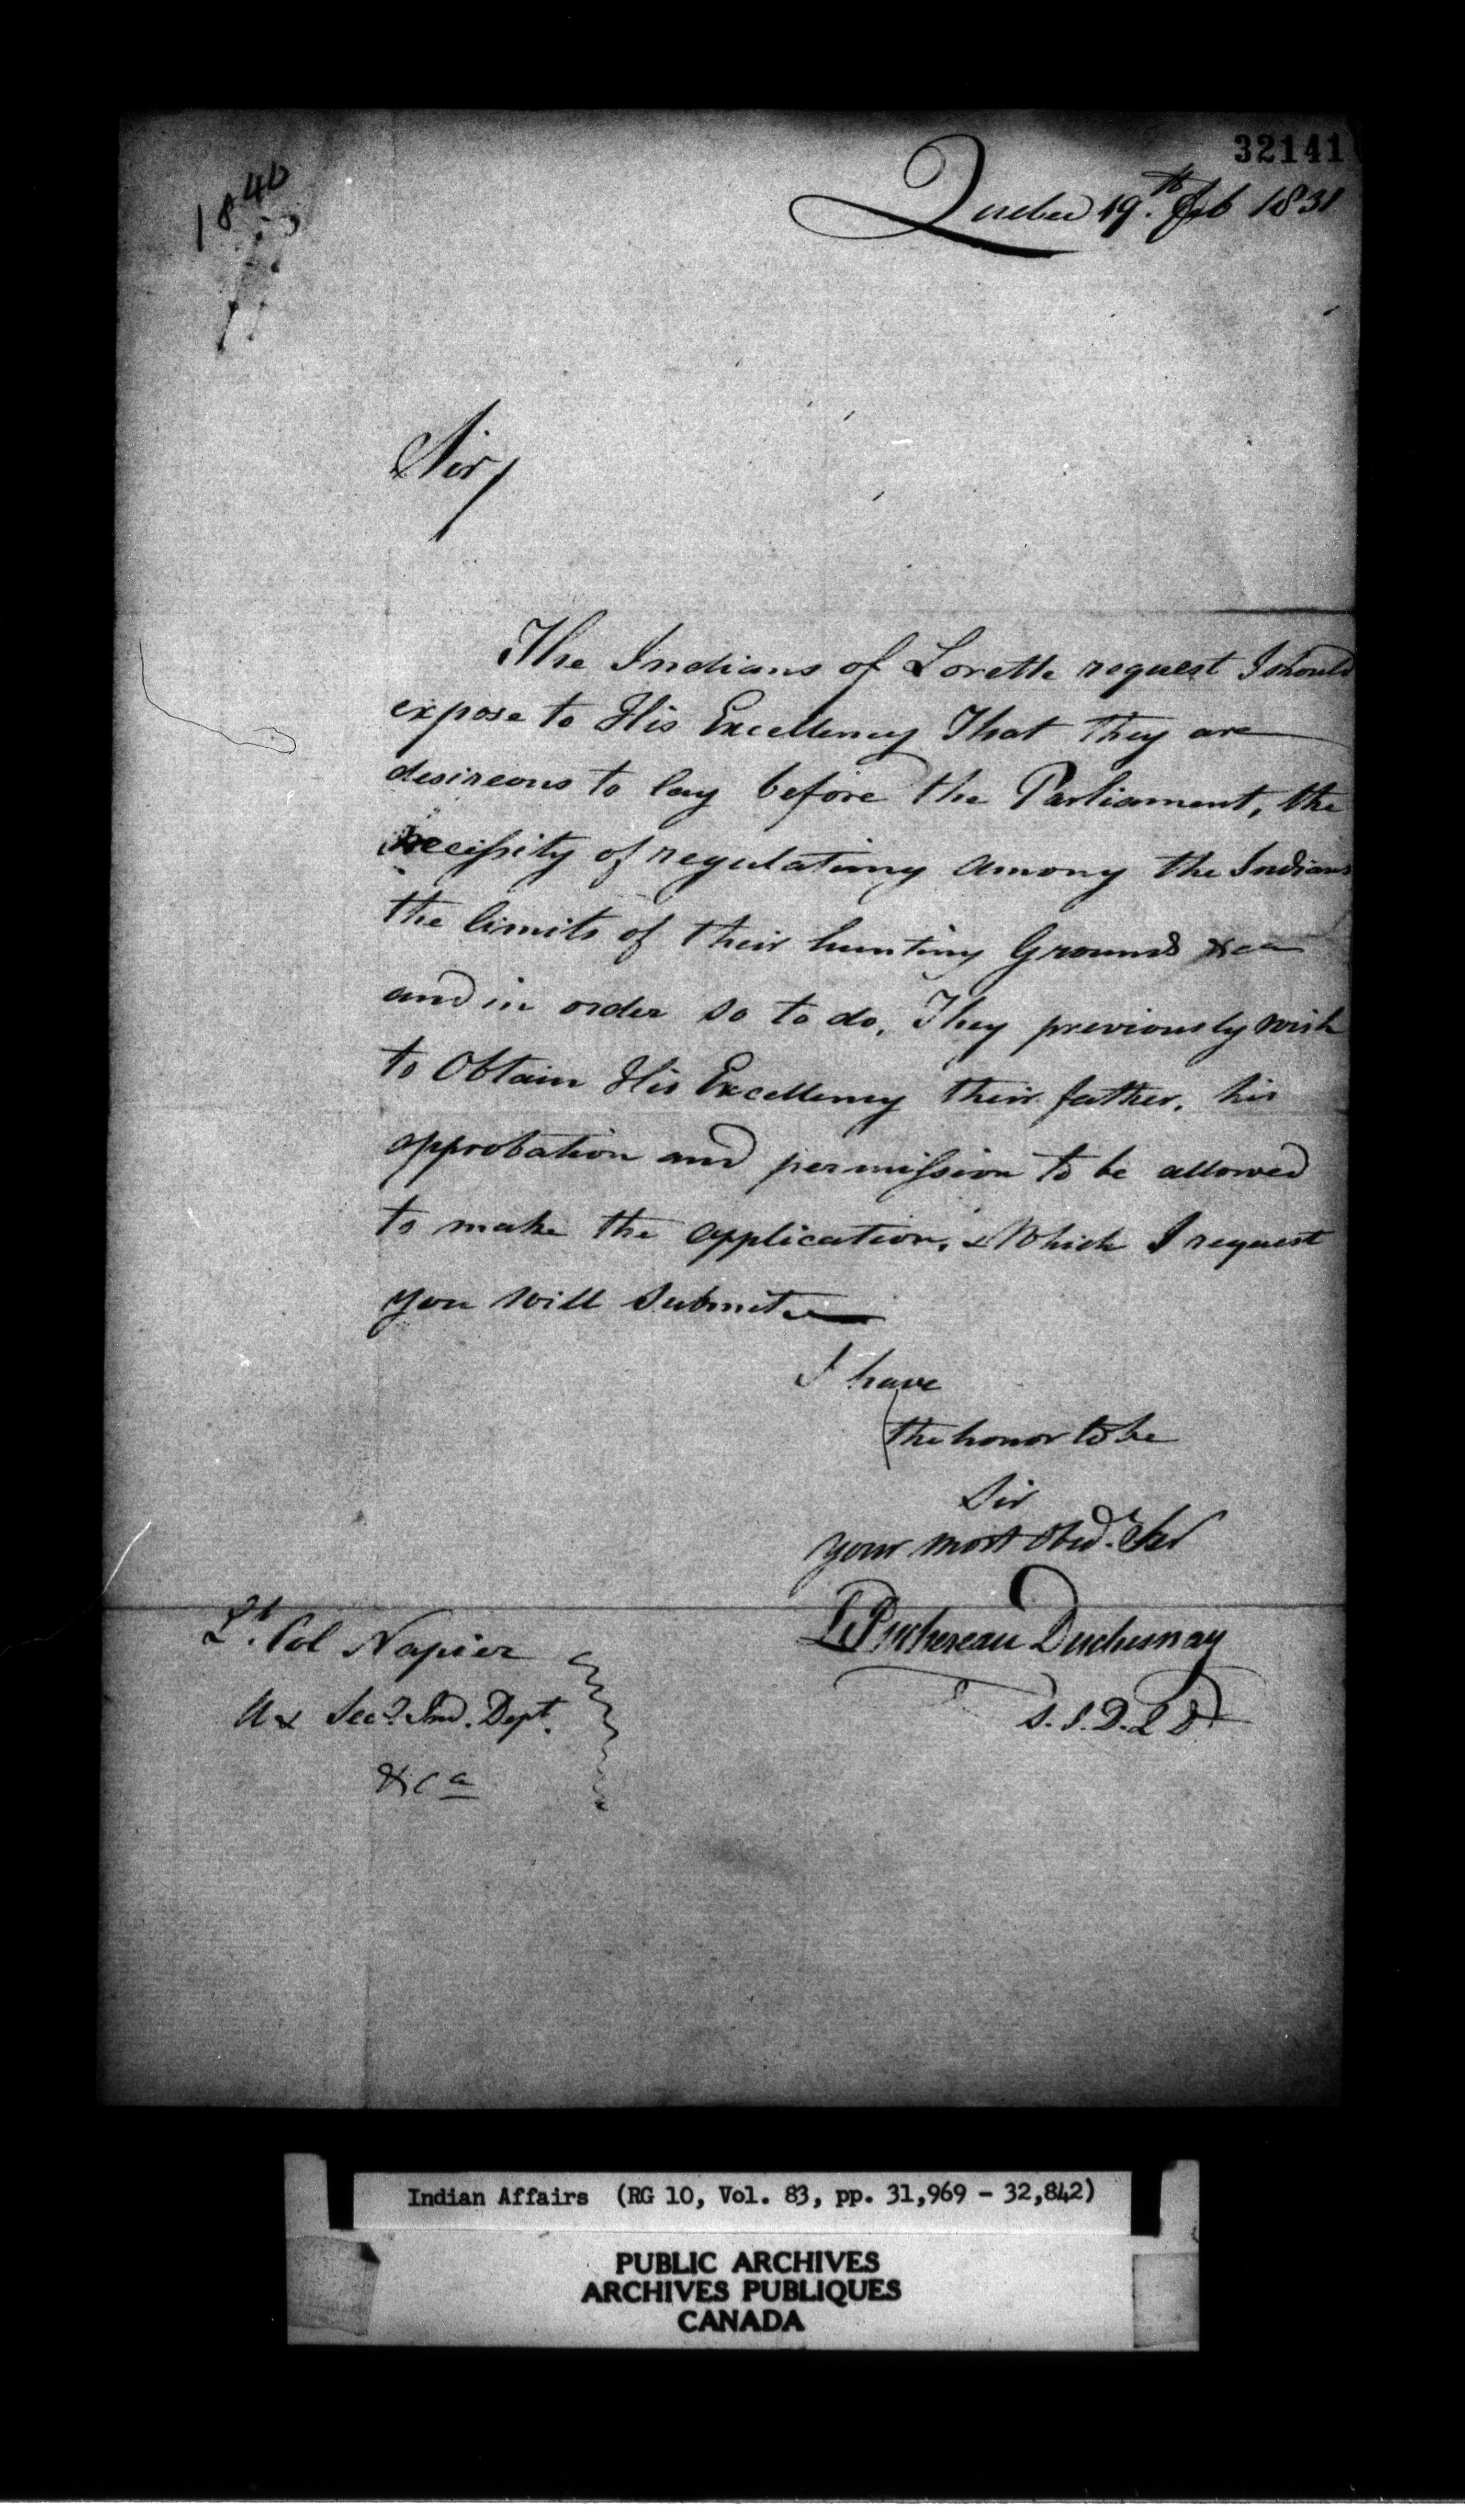 32141
1840
Quebec 19th. Feb 1831
Sir/
The Indians of Lorette request I should
expose to His Excellency That they are
desireous to lay before the Parliament, the
necessity of regulating among the Indians
the limits of their hunting Grounds &ca
and in order so to do, They previously wish
to Obtain His Excellency their father, his
approbation and permission to be allowed
to make the application, & Which I request
you will submit
I have
the honor to be
Sir
your most Obed. Ser
L Juchereau Duchesnay
S.I.D.L D
Lt. Col Napier
&c Secy. Ind. Dept.
&ca
Indian Affairs (RG 10, Vol. 83, pp. 31,969 - 32,842)
PUBLIC ARCHIVES
ARCHIVES PUBLIQUES
CANADA